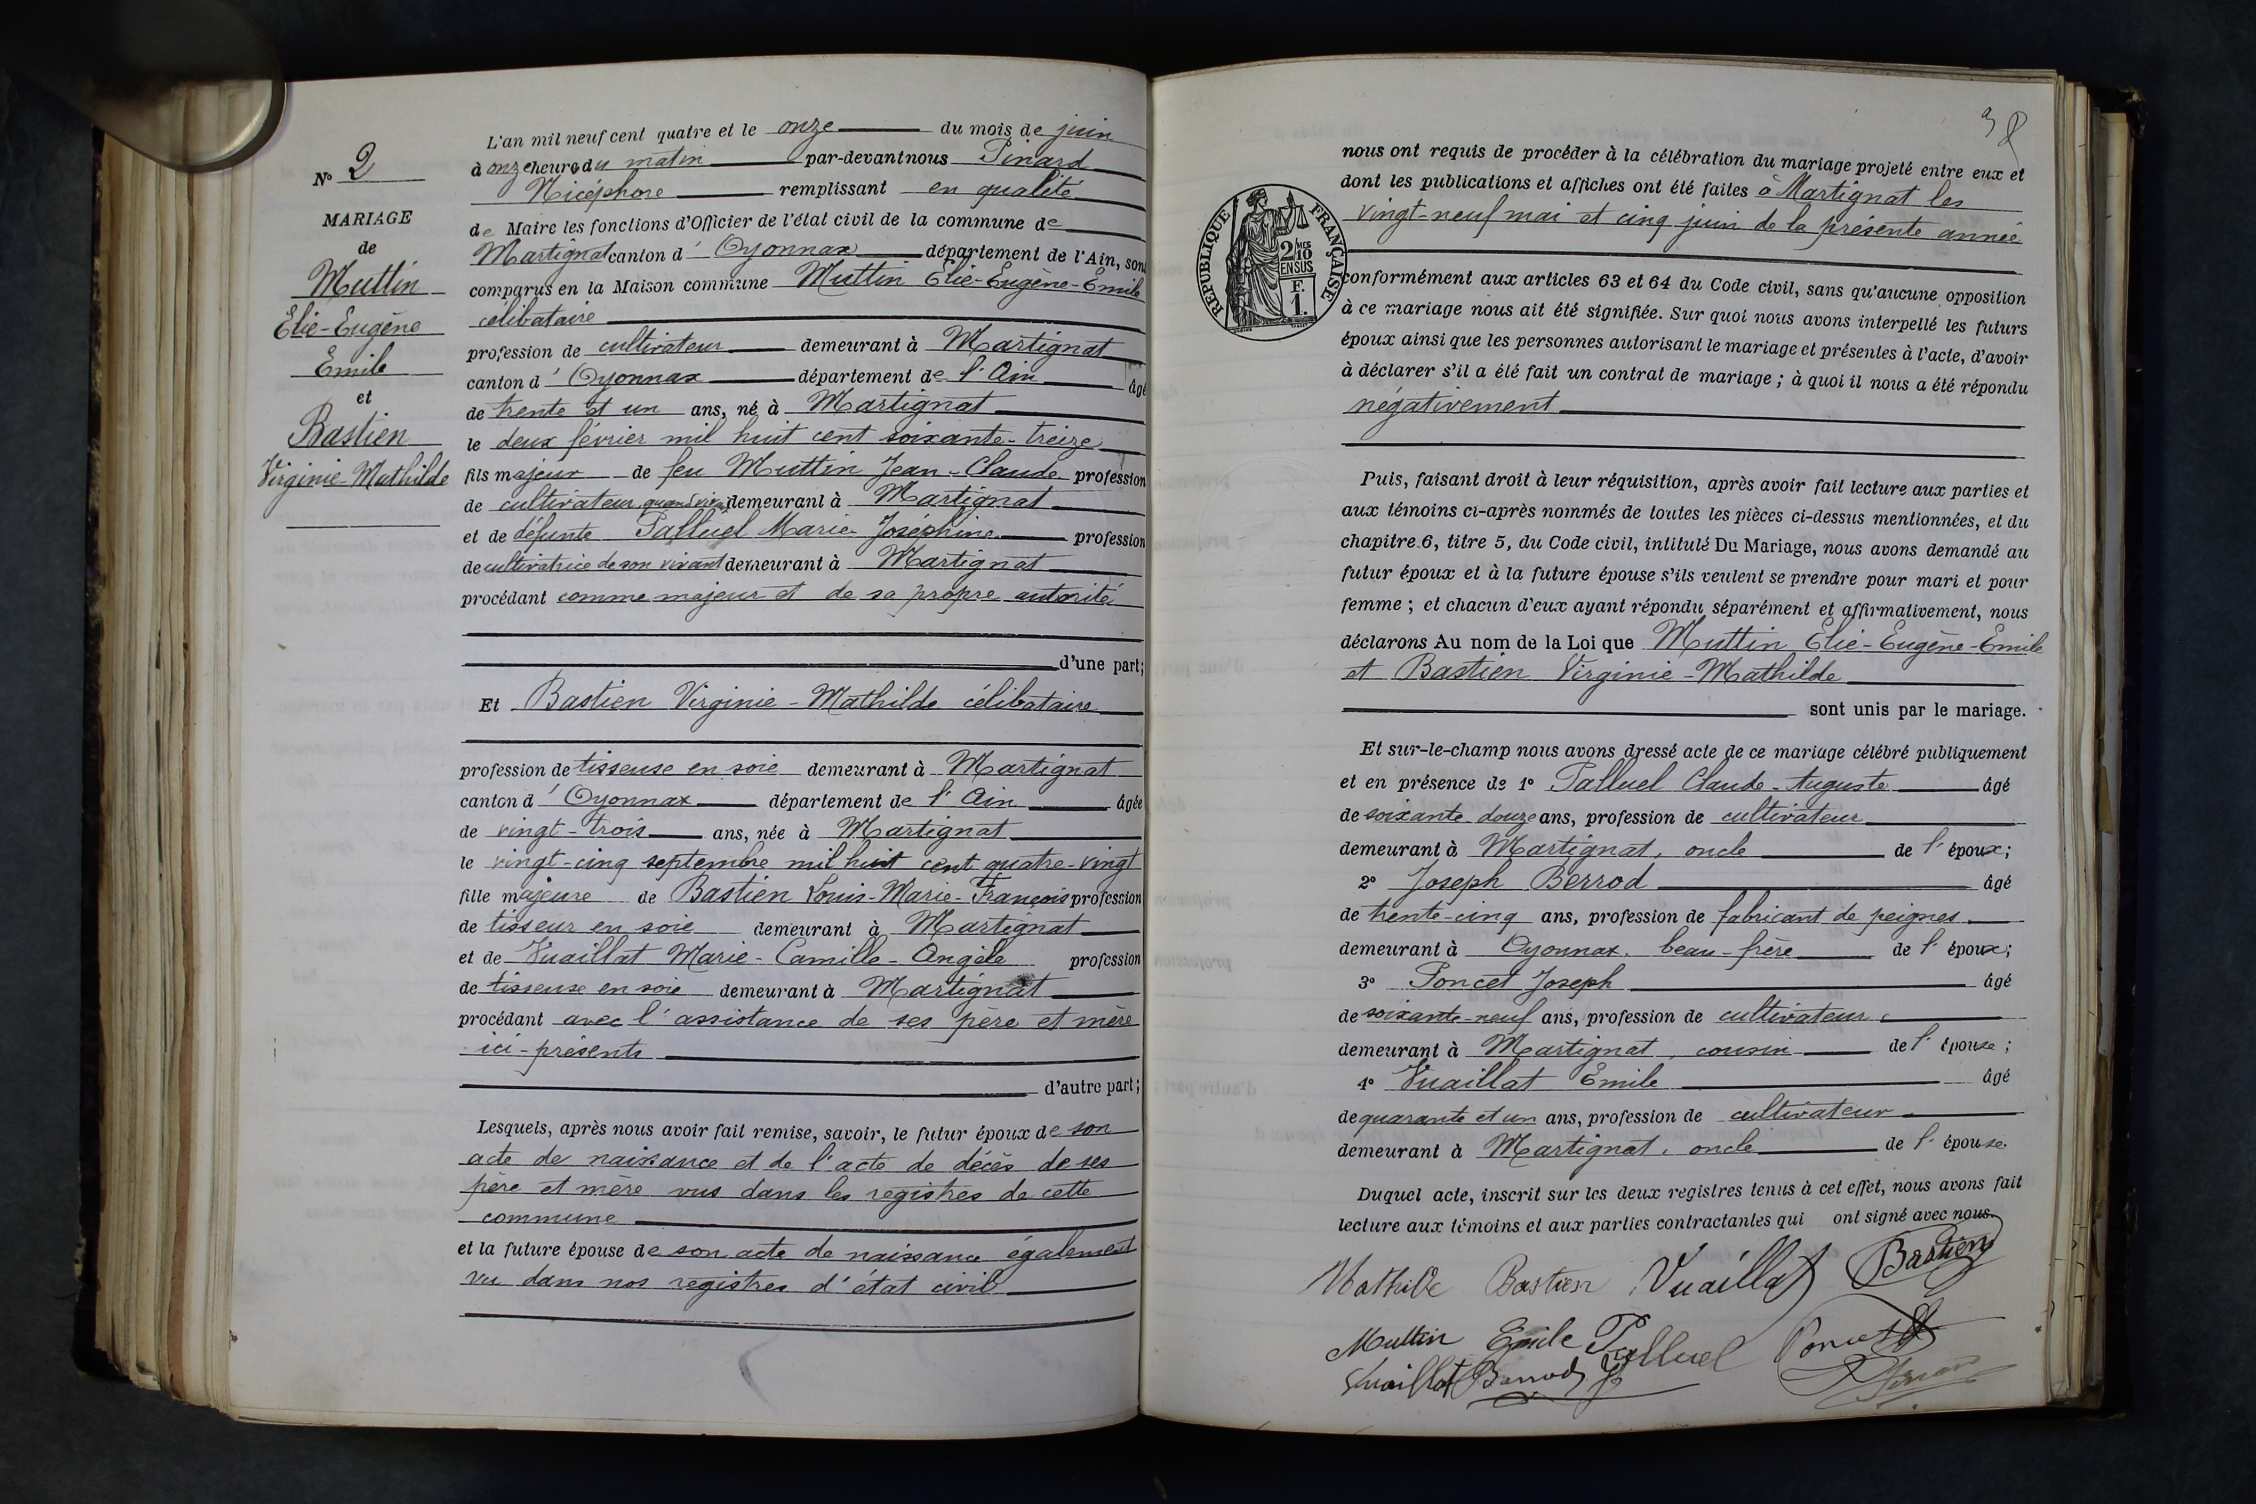 N° 2
MARIAGE
de
Muttin
Elie-Eugène
Emile
et
Bastien
Virginie-Mathilde
L'an mil neuf cent quatre et le onze du mois de juin
à onze heures du matin par-devant nous Pinard
Nicéphore remplissant en qualité
de Maire les fonctions d'Officier de l'état civil de la commune de
Martignat canton d'Oyonnax département de l'Ain, sont
comparus en la Maison commune Muttin Elie-Eugène-Emile
célibataire
profession de cultivateur demeurant à Martignat
canton d'Oyonnax département de l'Ain âgé
de trente et un ans, né à Martignat
le deux février mil huit cent soixante-treize
fils majeur de feu Muttin Jean-Claude profession
de cultivateur quand vivait demeurant à Martignat
et de défunte Palluel Marie-Joséphine profession
de cultivatrice de son vivant demeurant à Martignat
procédant comme majeur et de sa propre autorité
d'une part;
Et Bastien Virginie-Mathilde célibataire
profession de tisseuse en soie demeurant à Martignat
canton d'Oyonnax département de l'Ain âgée
de vingt-trois ans, née à Martignat
le vingt-cinq septembre mil huit cent quatre-vingt
fille majeure de Bastien Louis-Marie-François profession
de tisseur en soie demeurant à Martignat
et de Vuaillat Marie-Camille-Angèle profession
de tisseuse en soie demeurant à Martignat
procédant avec l'assistance de ses père et mère
ici-présents
d'autre part;
Lesquels, après nous avoir fait remise, savoir, le futur époux de son
acte de naissance et de l'acte de décès de ses
père et mère vus dans les registres de cette
commune
et la future épouse de son acte de naissance également
vu dans nos registres d'état civil
38
REPUBLIQUE FRANÇAISE
2/10 MES
EN SUS
F.
1.
nous ont requis de procéder à la célébration du mariage projeté entre eux et
dont les publications et affiches ont été faites à Martignat les
vingt-neuf mai et cinq juin de la présente année
conformément aux articles 63 et 64 du Code civil, sans qu'aucune opposition
à ce mariage nous ait été signifiée. Sur quoi nous avons interpellé les futurs
époux ainsi que les personnes autorisant le mariage et présentes à l'acte, d'avoir
à déclarer s'il a été fait un contrat de mariage; à quoi il nous a été répondu
négativement
Puis, faisant droit à leur réquisition, après avoir fait lecture aux parties et
aux témoins ci-après nommés de toutes les pièces ci-dessus mentionnées, et du
chapitre 6, titre 5, du Code civil, intitulé Du Mariage, nous avons demandé au
futur époux et à la future épouse s'ils veulent se prendre pour mari et pour
femme; et chacun d'eux ayant répondu séparément et affirmativement, nous
déclarons Au nom de la Loi que Muttin Elie-Eugène-Emile
et Bastien Virginie-Mathilde
sont unis par le mariage.
Et sur-le-champ nous avons dressé acte de ce mariage célébré publiquement
et en présence de 1° Palluel Claude-Auguste âgé
de soixante douze ans, profession de cultivateur
demeurant à Martignat, oncle de l'époux;
2° Joseph Berrod âgé
de trente-cinq ans, profession de fabricant de peignes
demeurant à Oyonnax, beau-frère de l'époux;
3° Poncet Joseph âgé
de soixante-neuf ans, profession de cultivateur
demeurant à Martignat, cousin de l'épouse;
4° Vuaillat Emile âgé
de quarante et un ans, profession de cultivateur
demeurant à Martignat, oncle de l'épouse.
Duquel acte, inscrit sur les deux registres tenus à cet effet, nous avons fait
lecture aux témoins et aux parties contractantes qui ont signé avec nous.
Mathilde Bastien Vuaillat Bastien
Muttin Emile Palluel Poncet
Vuaillat Berrod J Pinard